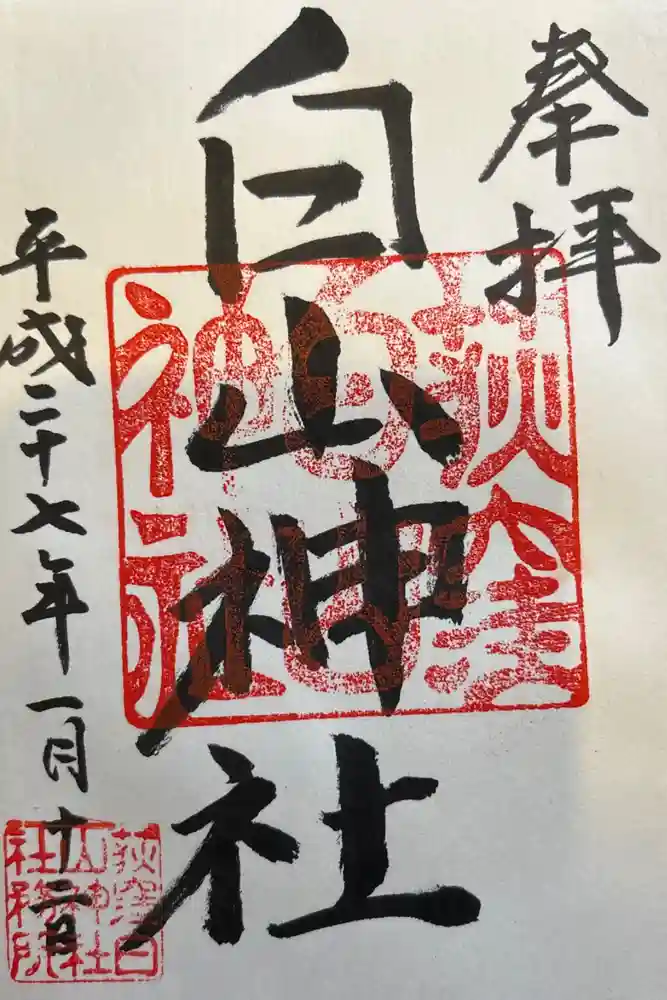 奉拝
白山神社
平成二十七年一月十二日
荻窪
白山
神社
荻窪白
山神社
社務所